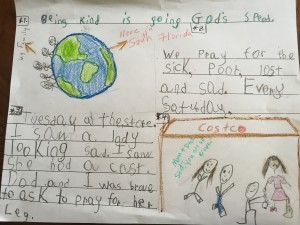 #1.
Being kind is going God's speed.
#2.
We pray for the
sick, poor, lost
and sad. Every
Saturday.
#3
Tuesday at the store.
I saw a lady
looking sad. I saw
she had a cast.
Dad and I was brave
to ask to pray for her
Leg.
#4
Costco